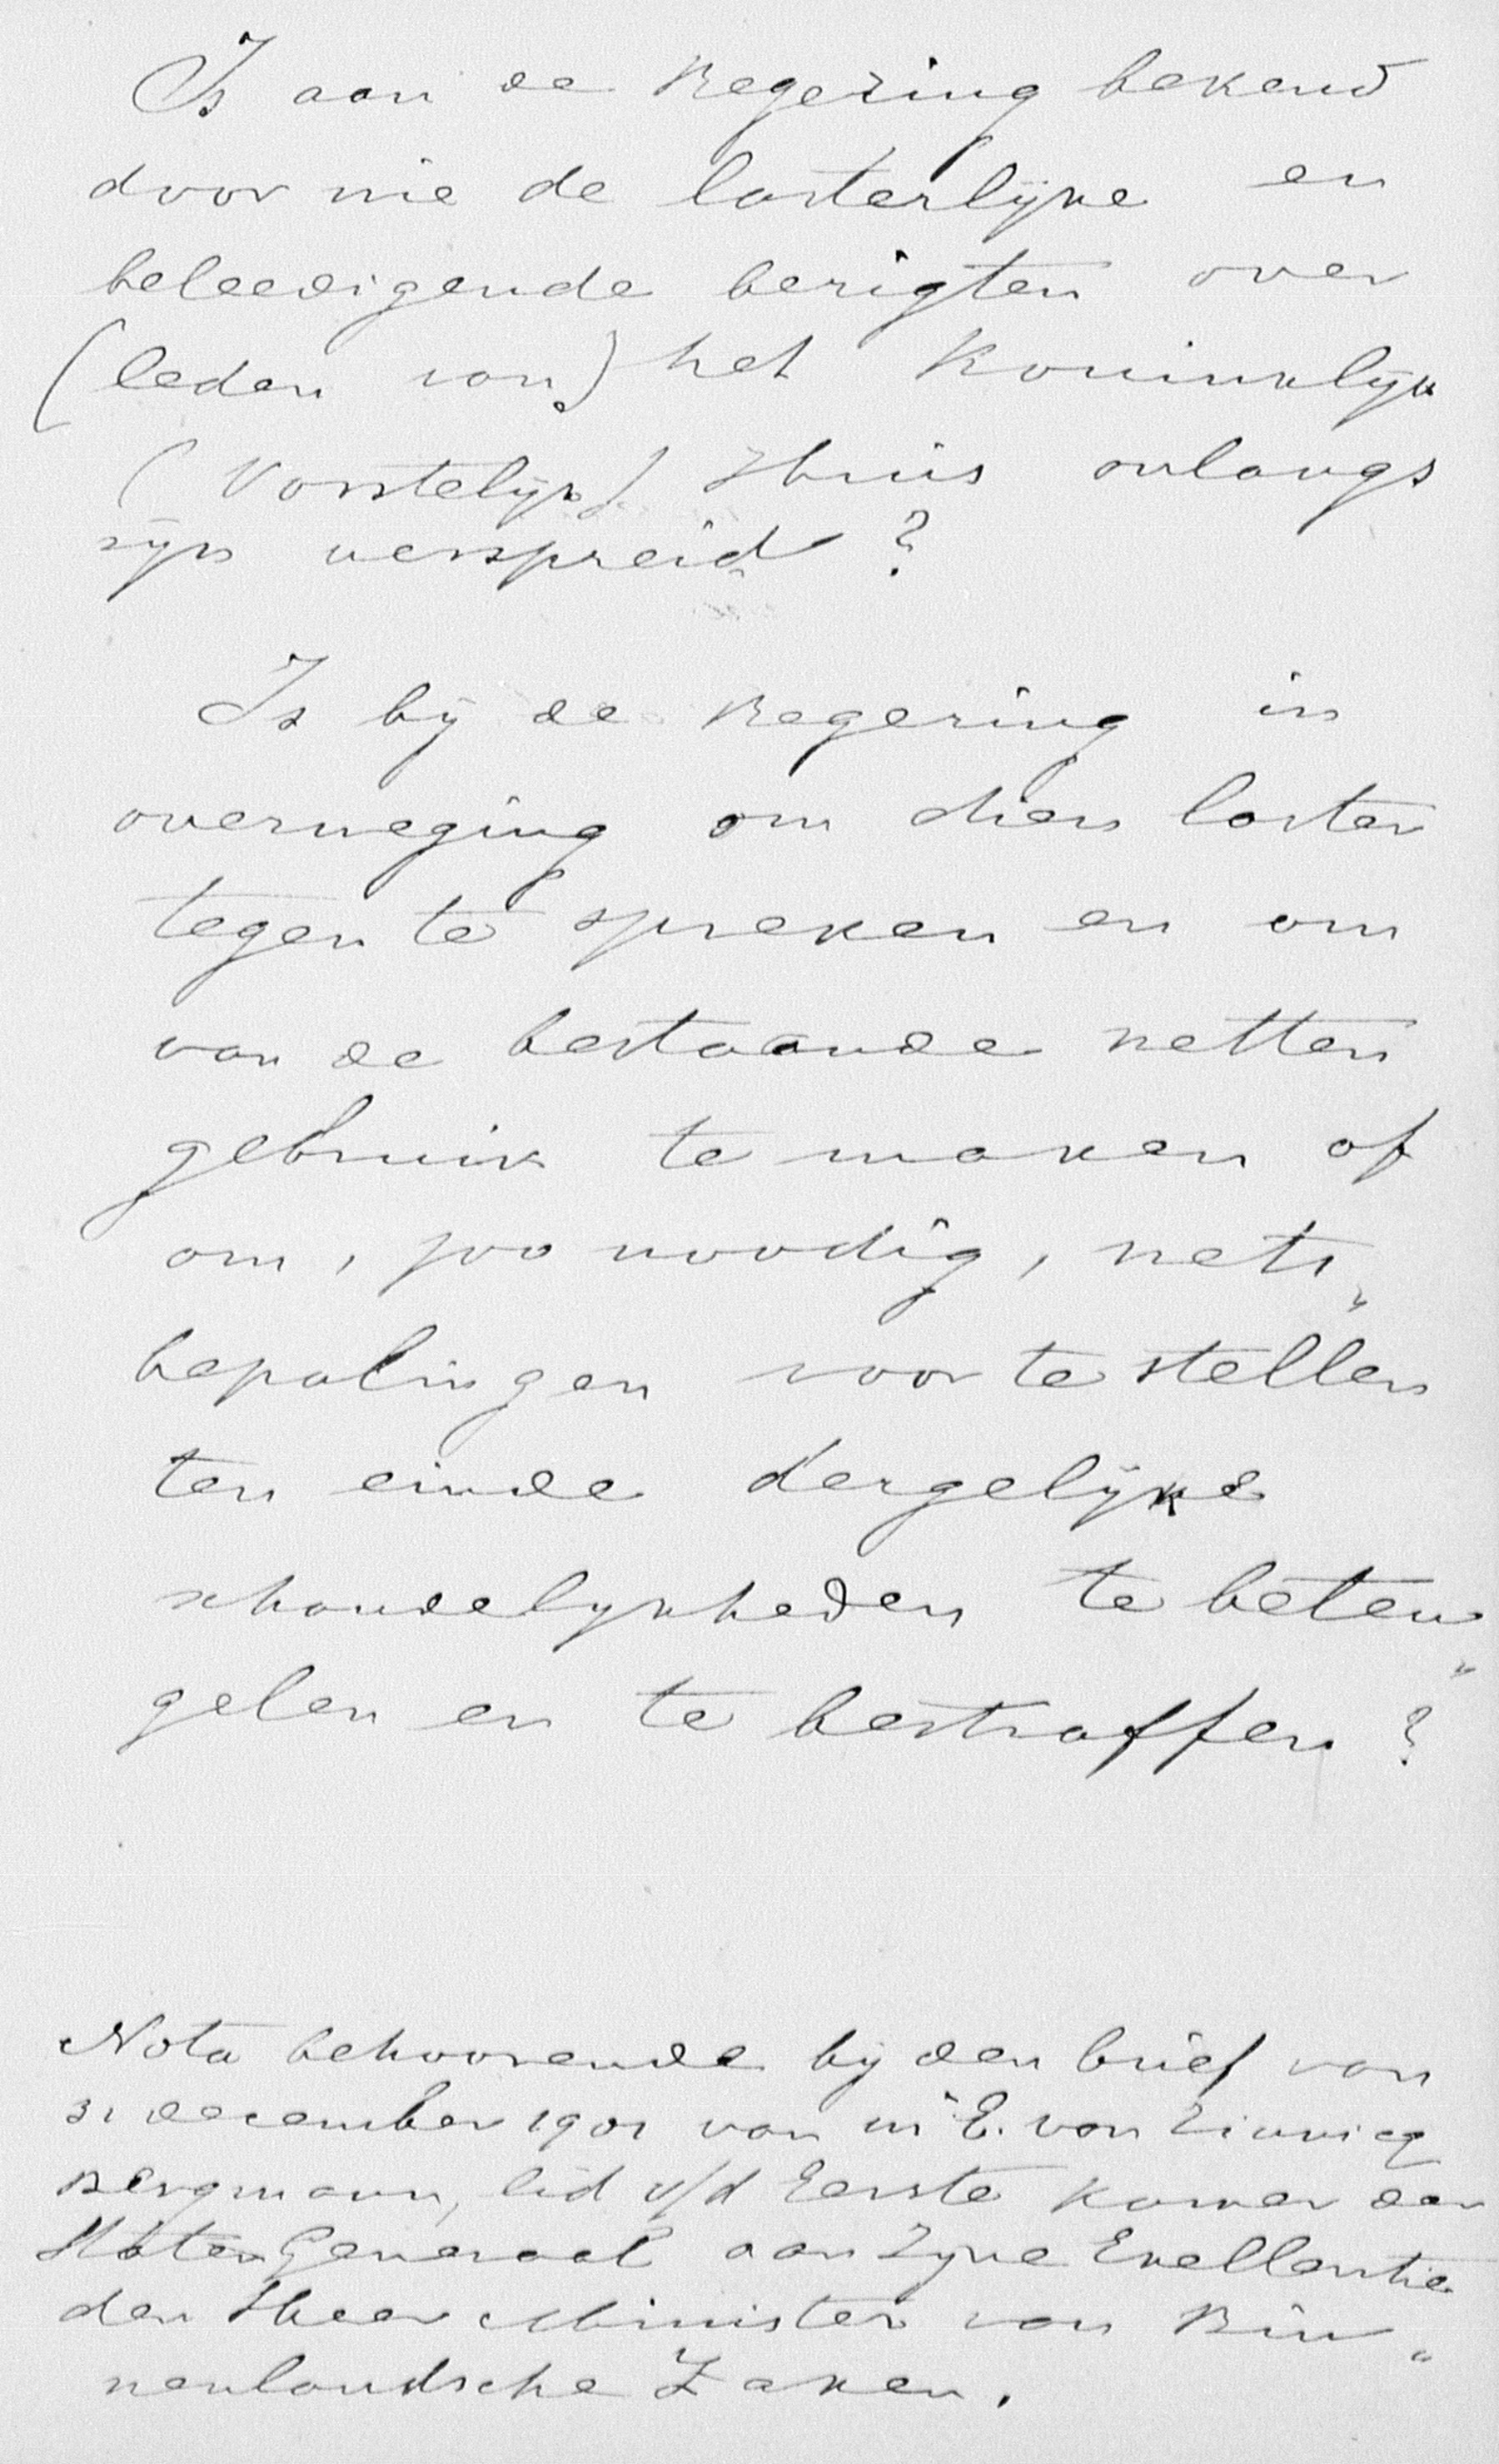 Is aan de Regering bekend
door wie de lasterlijke en
beleedigende berigten over
(leden van) het Koninklijk
(Vorstelijk) Huis onlangs
zijn verspreid?
Is bij de Regering in
overweging om dien laster
tegen te spreken en om
van de bestaande wetten
gebruik te maken of
om, zoo noodig, wets„
bepalingen voor te stellen
ten einde dergelijke
schandelijkheden te beteu„
gelen en te bestraffen?
Nota behoorende bij den brief van
31 december 1901 van mr E. van Zinnicq
Bergmann, lid v/d Eerste Kamer der
Staten Generaal aan Zijne Exellentie
den Heer Minister van Bin„
nenlandsche Zaken.